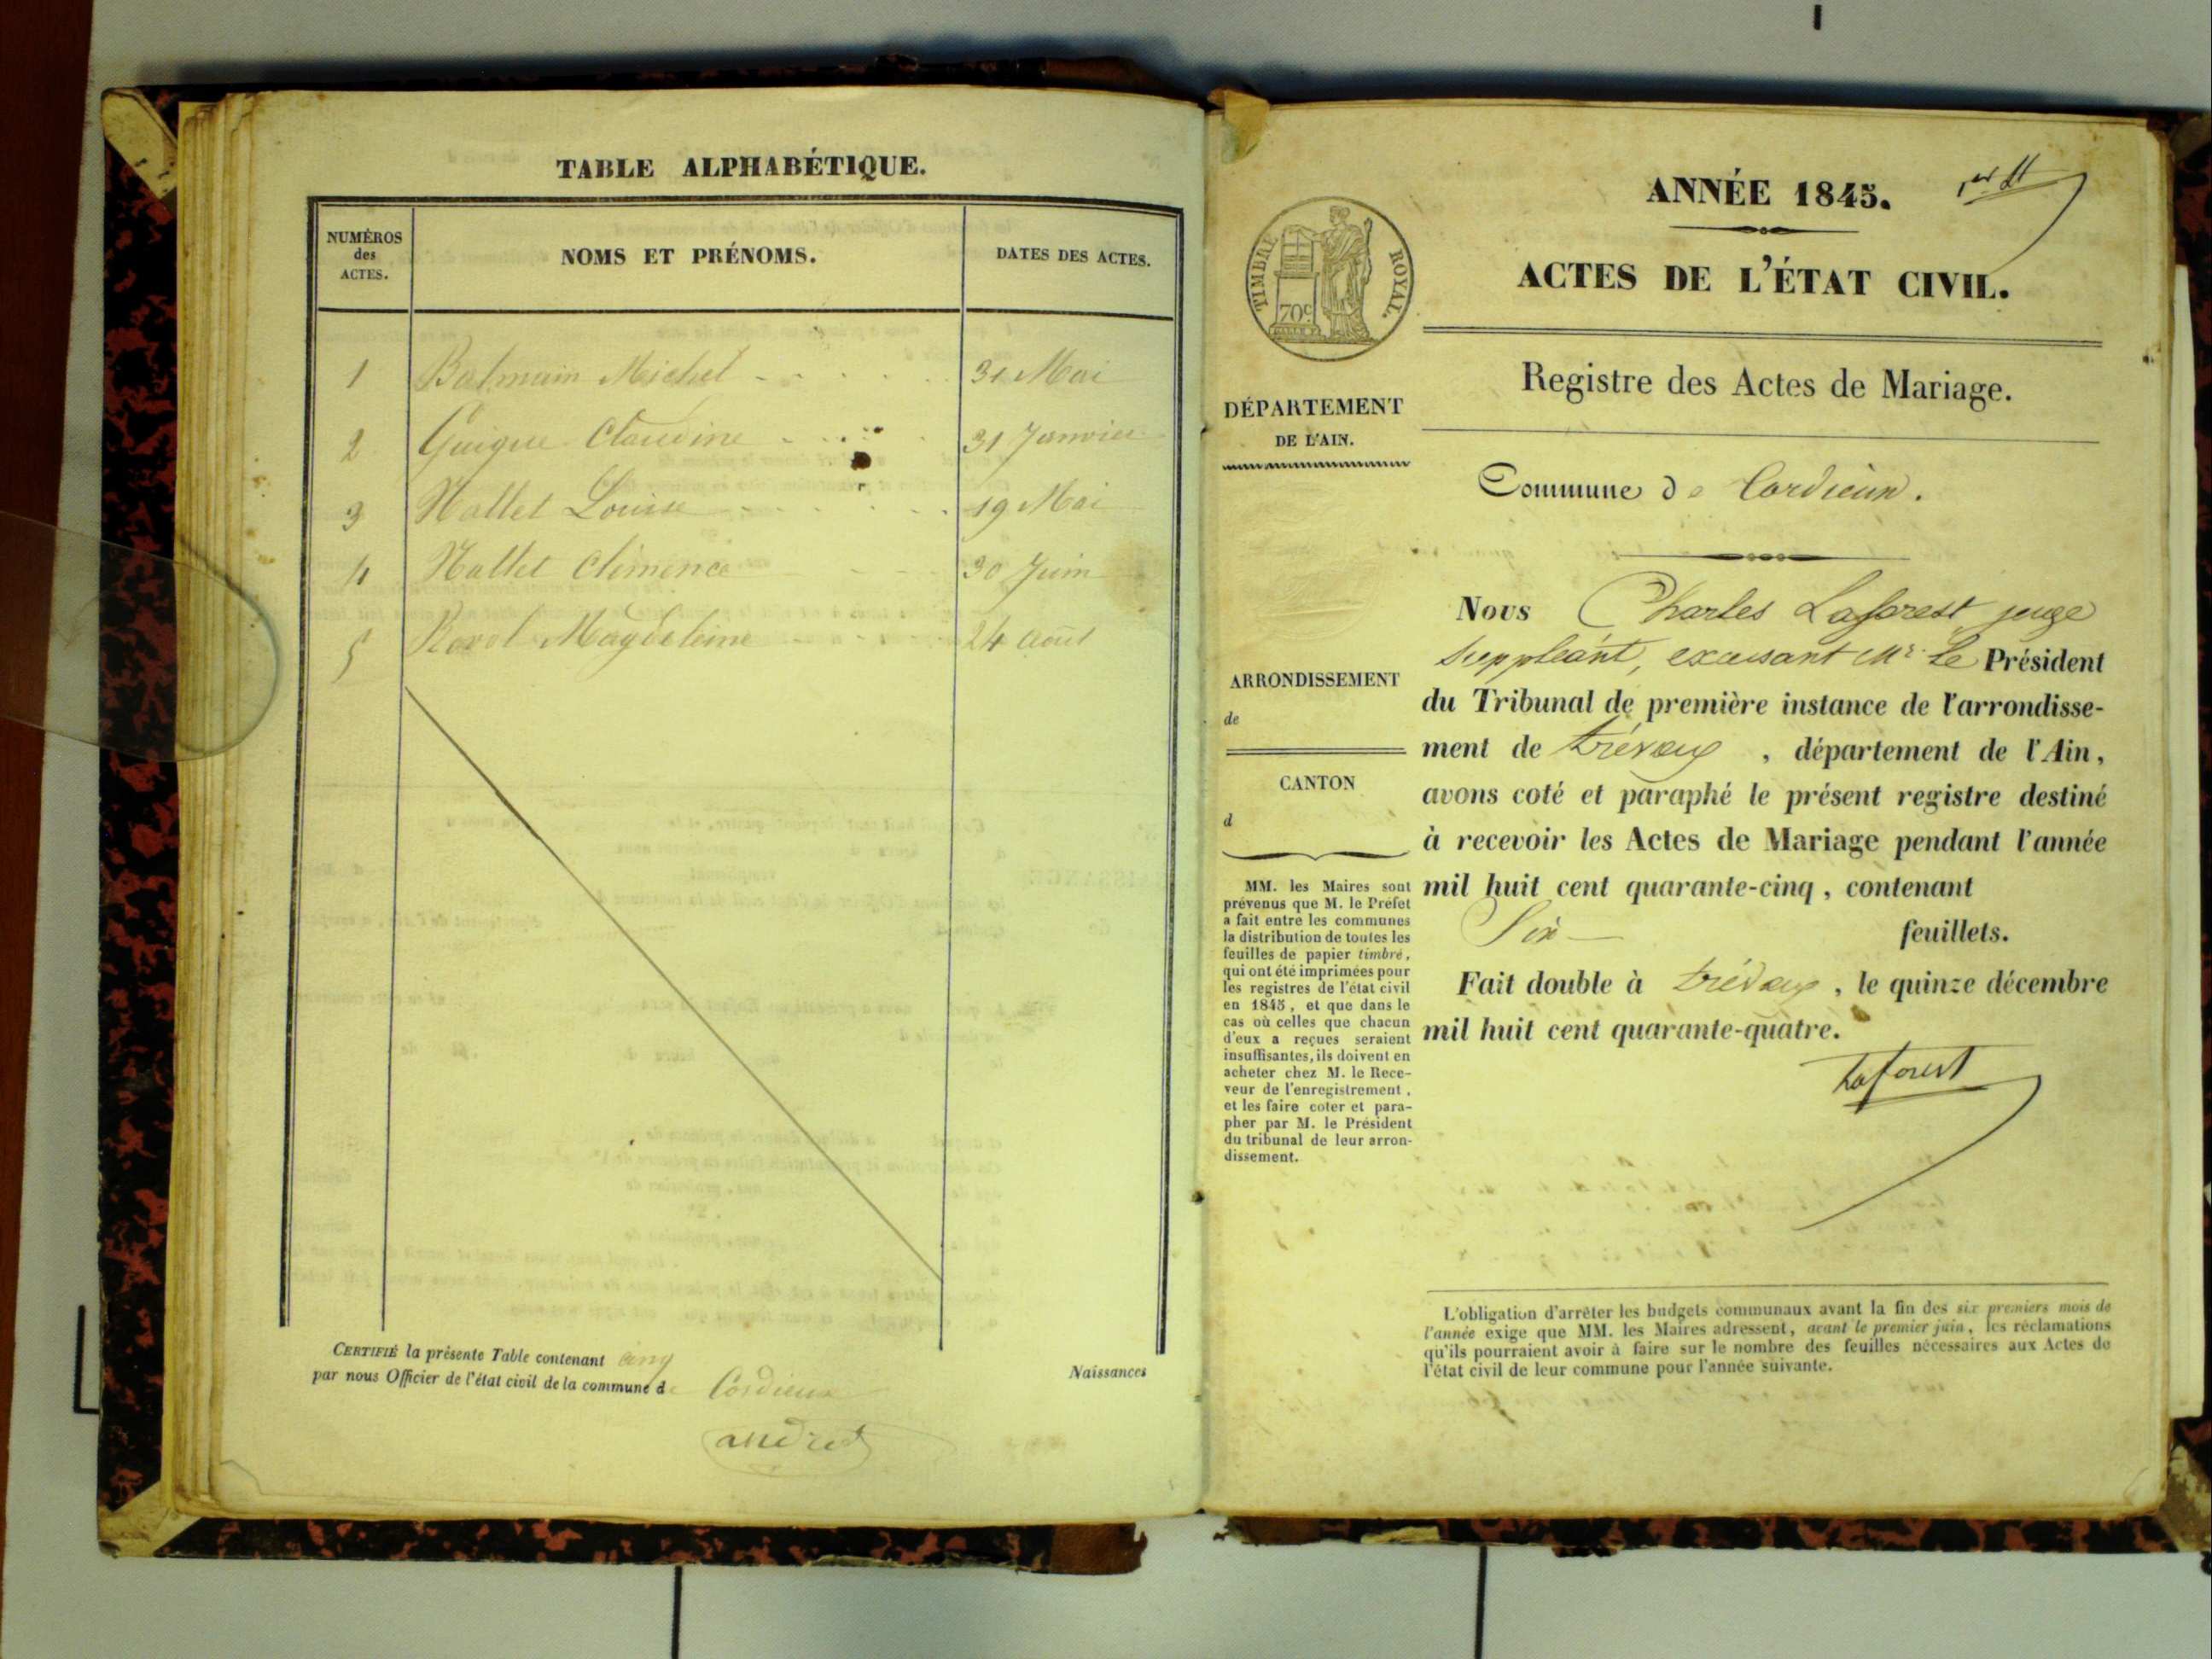 TABLE ALPHABÉTIQUE.
NUMÉROS des ACTES.
NOMS ET PRÉNOMS.
DATES DES ACTES.
1 Balmain Michel 31 Mai
2 Guigue Claudine 31 Janvier
3 Nallet Louise 19 Mai
4 Nallet Clémence 30 Juin
5 Magdeleine 24 août
CERTIFIÉ la présente Table contenant cinq Naissances
par nous Officier de l'état civil de la commune de Cordieux
andret
1er
ANNÉE 1845.
ACTES DE L'ÉTAT CIVIL.
TIMBRE ROYAL.
70c
Registre des Actes de Mariage.
DÉPARTEMENT
DE L'AIN.
Commune de Cordieux.
Nous Charles Laforest juge
suppléant, excusant Mr. le Président
ARRONDISSEMENT
de
du Tribunal de première instance de l'arrondisse-
ment de trévoux, département de l'Ain,
CANTON
d
avons coté et paraphé le présent registre destiné
à recevoir les Actes de Mariage pendant l'année
mil huit cent quarante-cinq, contenant
Six feuillets.
Fait double à trévoux, le quinze décembre
mil huit cent quarante-quatre.
Laforest
MM. les Maires sont
prévenus que M. le Préfet
a fait entre les communes
la distribution de toutes les
feuilles de papier timbré,
qui ont été imprimées pour
les registres de l'état civil
en 1845, et que dans le
cas où celles que chacun
d'eux a reçues seraient
insuffisantes, ils doivent en
acheter chez M. le Rece-
veur de l'enregistrement,
et les faire coter et para-
pher par M. le Président
du tribunal de leur arron-
dissement.
L'obligation d'arrêter les budgets communaux avant la fin des six premiers mois de
l'année exige que MM. les Maires adressent, avant le premier juin, les réclamations
qu'ils pourraient avoir à faire sur le nombre des feuilles nécessaires aux Actes de
l'état civil de leur commune pour l'année suivante.